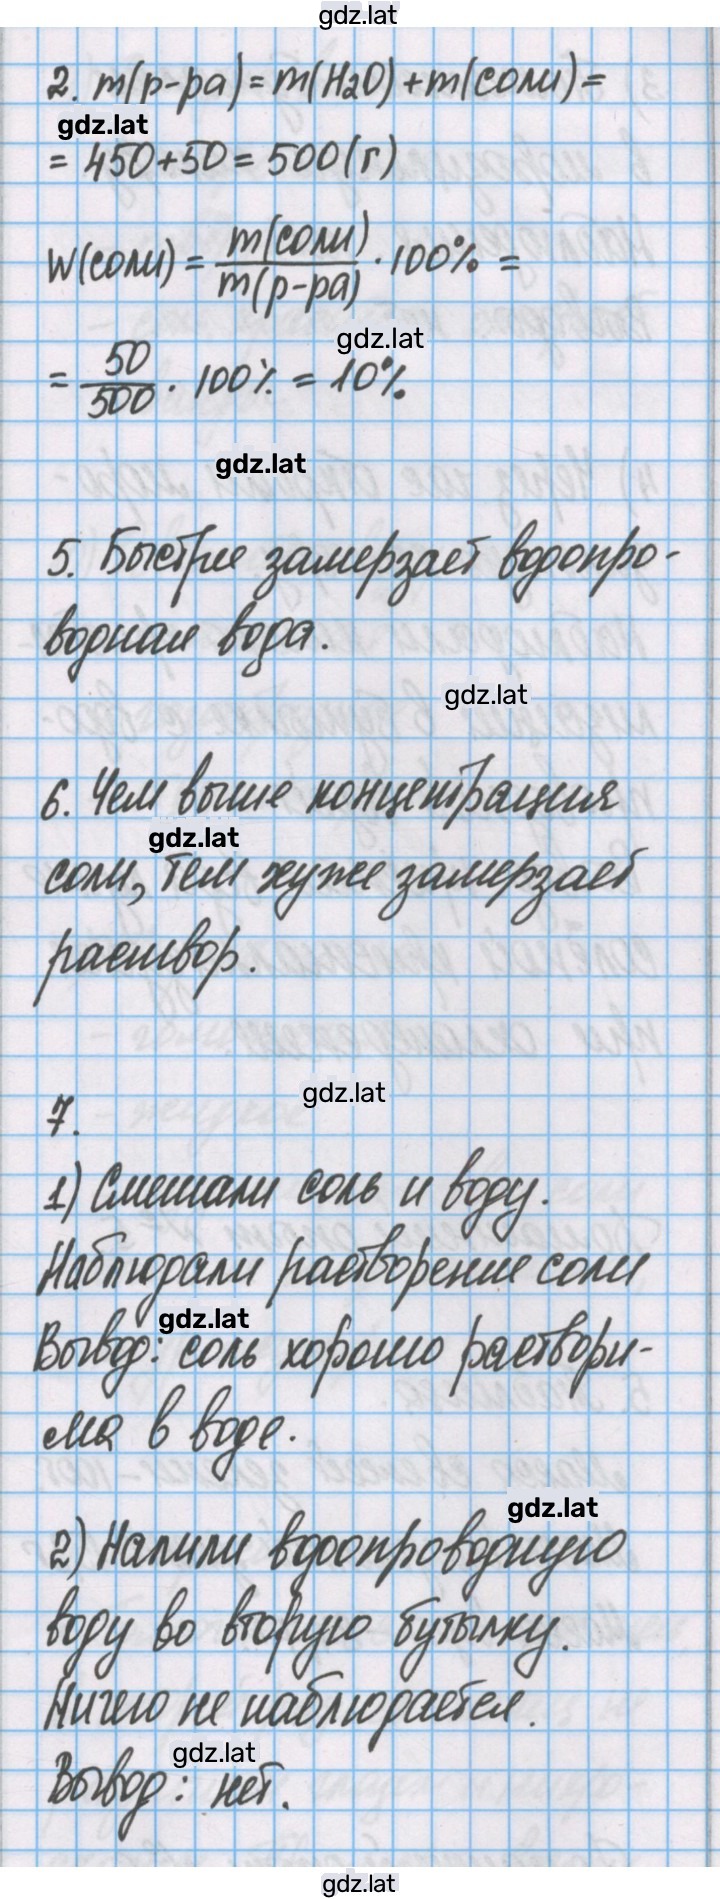 gdz.lat
2. m(р-ра) = m(H₂O) + m(соли) =
gdz.lat
= 450 + 50 = 500 (г)
W(соли) = m(соли) / m(р-ра) · 100% =
gdz.lat
= 50 / 500 · 100% = 10%
gdz.lat
5. Быстрее замерзает водопро-
водная вода.
gdz.lat
6. Чем выше концентрация
gdz.lat
соли, тем хуже замерзает
раствор.
gdz.lat
7.
1) Смешали соль и воду.
Наблюдали растворение соли
gdz.lat
Вывод: соль хорошо раствори-
ма в воде.
gdz.lat
2) Налили водопроводную
воду во вторую бутылку.
Ничего не наблюдается.
gdz.lat
Вывод: нет.
gdz.lat